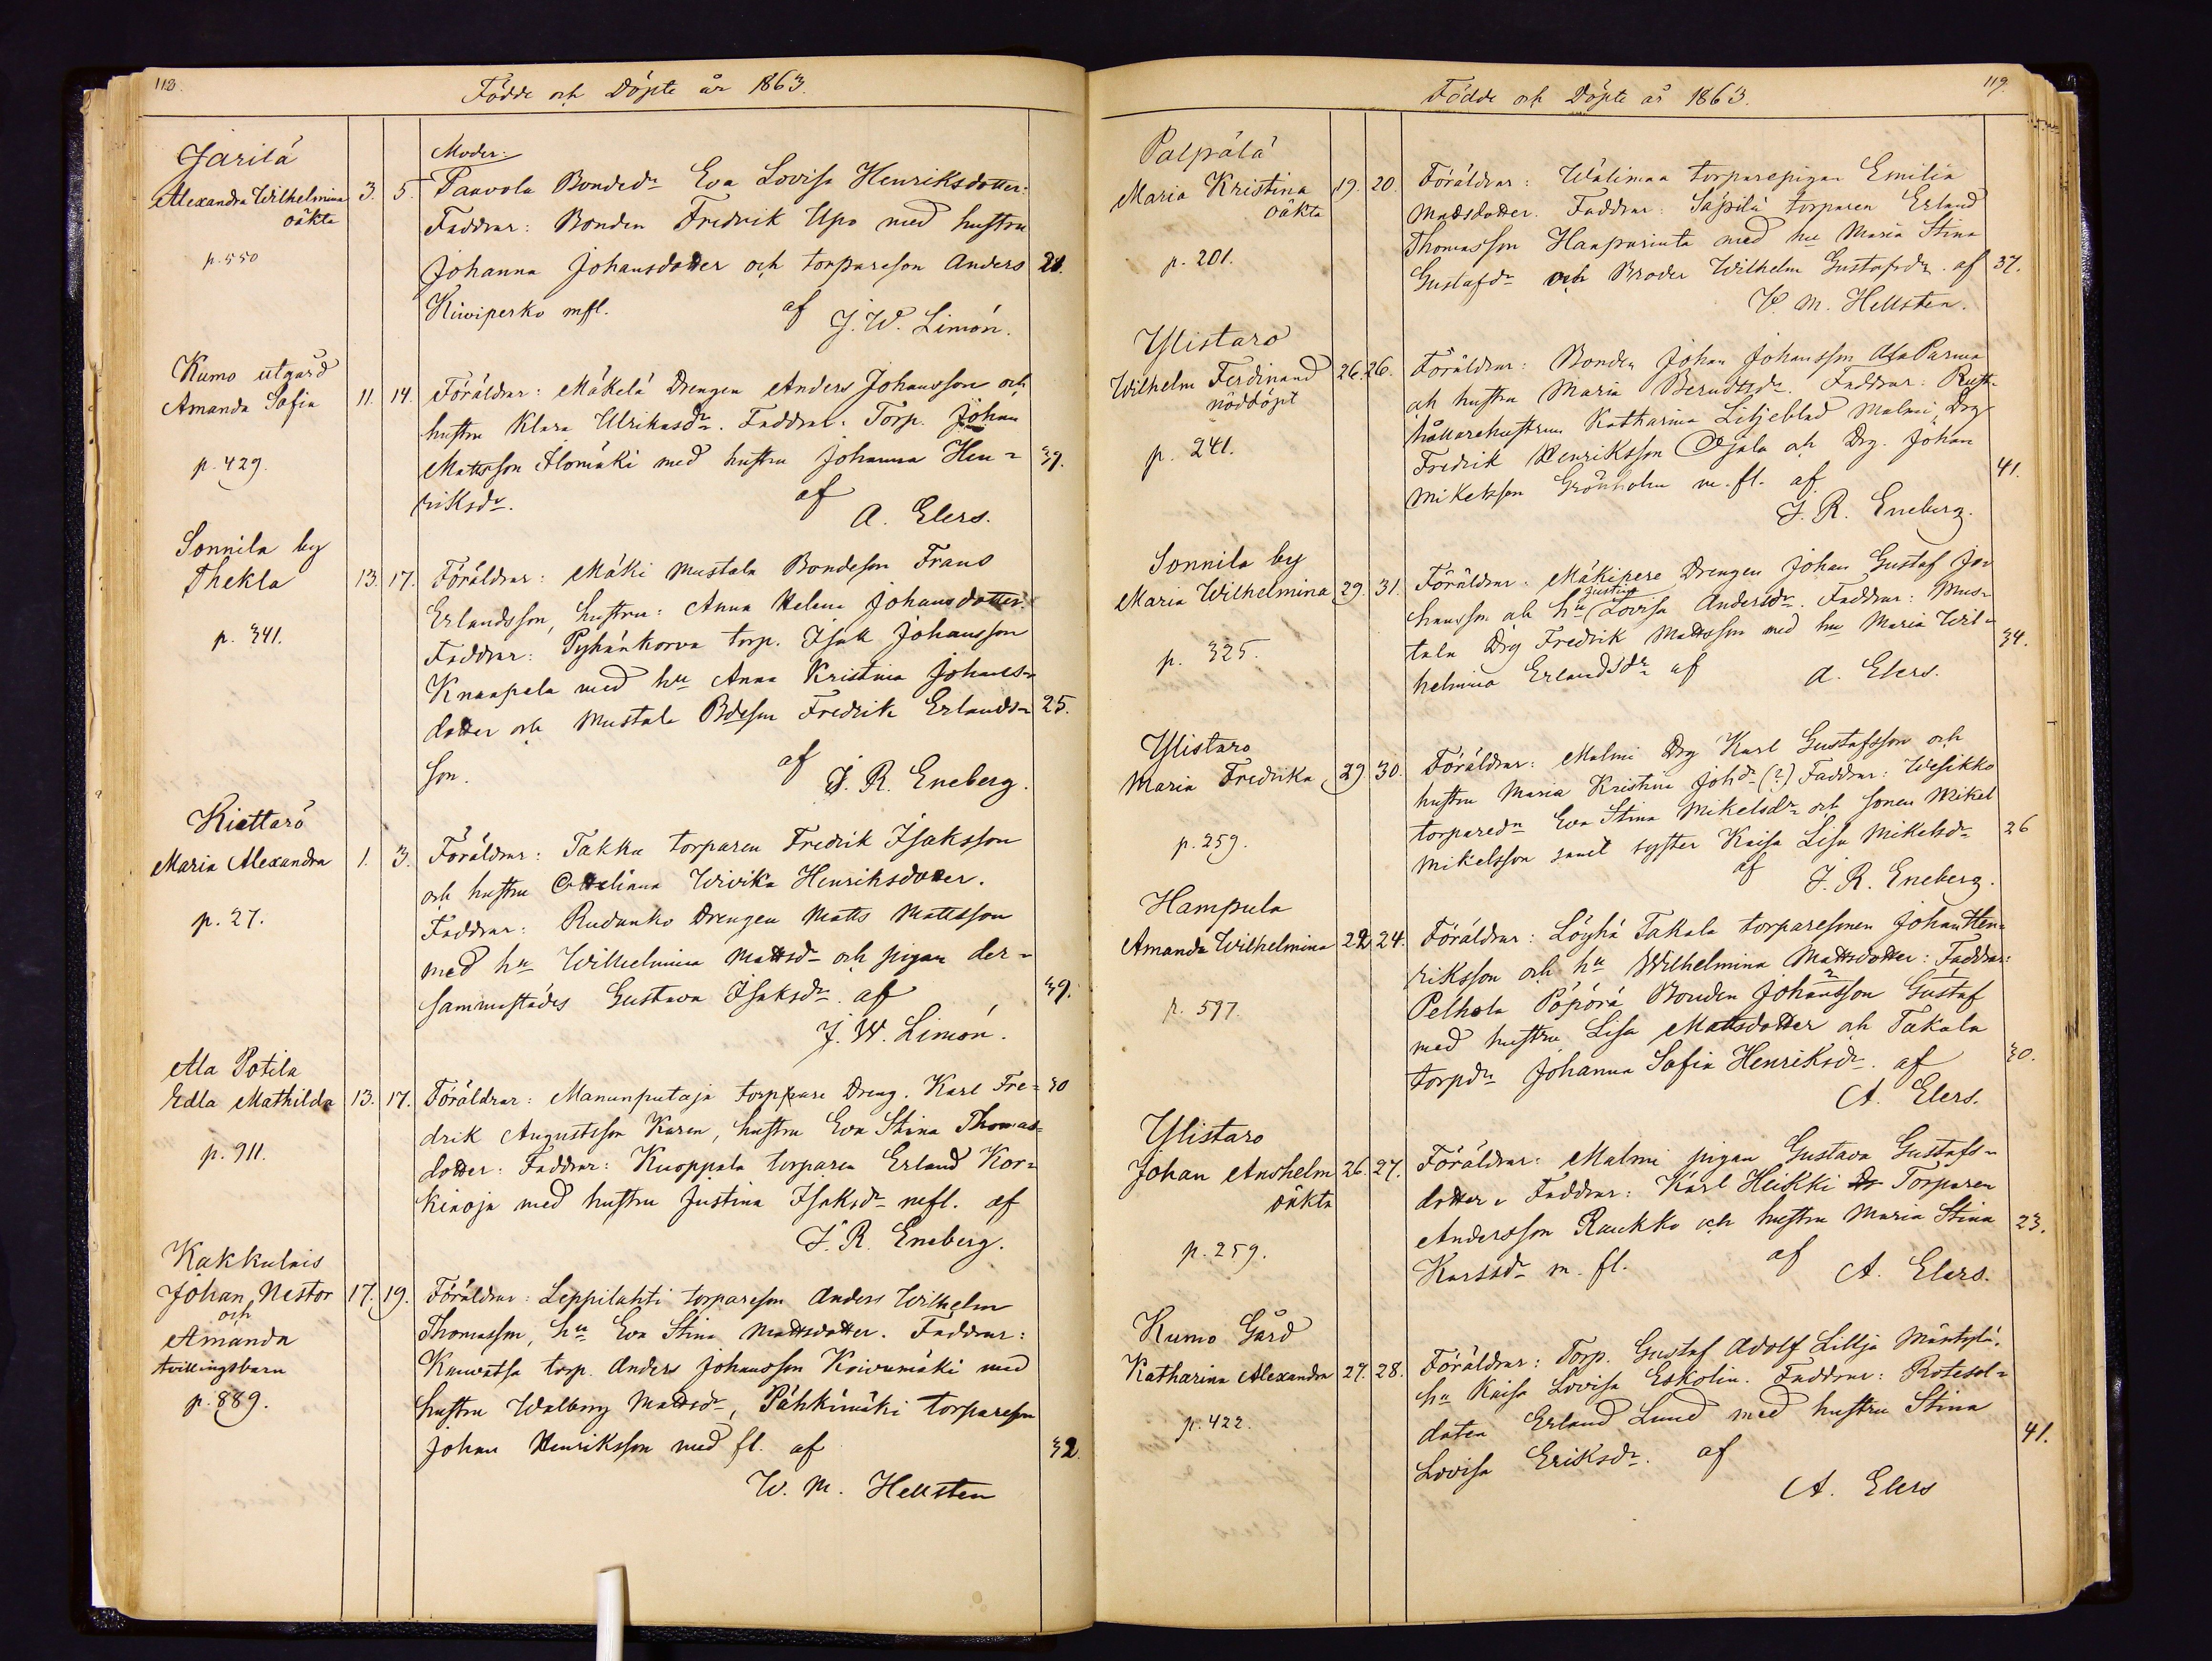 118.
Födde och Döpte år 1863.
Jarilä
Alexandra Wilhelmina 3. 5.
oäkta
p. 550
Moder:
Paavola Bonded:r Eva Lovisa Henriksdotter:
Faddrar: Bonden Fredrik Upo med hustru
Johanna Johansdotter och torpareson Anders 28.
Kiwiperko mfl. af
J. W. Limón.
Kumo utgård
Amanda Sofia 11. 14.
p. 429.
Föräldrar: Mäkelä Drengen Anders Johansson och
hustru Klara Ulrikasdr. Faddrar: Torp. Johan
Mattsson Ilomäki med hustru Johanna Hen= 39.
riksdr. af
A. Elers.
Sonnila by
Thekla 13. 17.
p. 341.
Föräldrar: Mäki Mustala Bondeson Frans
Erlandsson, hustru: Anna Helena Johansdotter.
Faddrar: Pyhänkorva torp. Isak Johansson
Knaapala med hu Anna Kristina Johans=
dotter och Mustala Bdeson Fredrik Erlands= 25.
son. af
J. R. Eneberg.
Kiettarö
Maria Alexandra 1. 3.
p. 27.
Föräldrar: Takku torparen Fredrik Isaksson
och hustru Ottiliana Wivika Henriksdotter.
Faddrar: Rudanko Drengen Matts Mattsson
med hu Wilhelmina Mattsdr och pigan der=
sammastädes Gustava Isaksdr. af 39.
J. W. Limón.
Ala Potila
Edla Mathilda 13. 17.
p. 911.
Föräldrar: Manunputaja torppare Dreng. Karl Fre= 30
drik Augustsson Karen, hustru Eva Stina Thomas=
dotter: Faddrar: Knoppala torparen Erland Kor=
kiaoja med hustru Justina Isaksdr mfl. af
J. R. Eneberg.
Kakkulais
Johan Nestor 17. 19.
och
Amanda
tvillingsbarn
p. 889.
Föräldrar: Leppilahti torpareson Anders Wilhelm
Thomasson, hu Eva Stina Mattsdotter. Faddrar:
Kauvatsa torp. Anders Johansson Koivumäki med
hustru Walborg Mattsdr, Pähkimäki torpareson
Johan Henriksson med fl. af 32.
W. M. Hellsten
119.
Födde och Döpte år 1863.
Palpälä
Maria Kristina 19. 20.
oäkta
p. 201.
Föräldrar: Wälimaa torparepigan Emilia
Mattsdotter. Faddrar: Säpilä torparen Erland
Thomasson Haapurinta med hu Maria Stina
Gustafdr och Broder Wilhelm Gustafsdr. af 37.
W. M. Hellsten.
Ylistaro
Wilhelm Ferdinand 26. 26.
nöddöpt
p. 241.
Föräldrar: Bonden Johan Johansson AlaParma
och hustru Maria Berndtsdr. Faddrar: Rust=
hållarehustrun Katharina Liljeblad Malmi, Drg
Fredrik Henriksson Ojala och Drg. Johan
Mikelsson Grönholm m. fl. af 41.
J. R. Eneberg.
Sonnila by
Maria Wilhelmina 29. 31.
p. 325.
Föräldrar: Mäkipere Drengen Johan Gustaf Jo=
hansson och hu Justina Lovisa Andersdr. Faddrar: Mus=
tala Drg Fredrik Mattsson med hu Maria Wil= 34.
helmina Erlandsdr af
A. Elers.
Ylistaro
Maria Fredrika 29 30.
p. 259.
Föräldrar: Malmi Drg Karl Gustafsson och
hustru Maria Kristina Johdr (?) Faddrar: Wesikko
torparedn Eva Stina Mikelsdr och sonen Mikel
Mikelsson samt syster Kaisa Lisa Mikelsdr 26
af
J. R. Eneberg.
Hampula
Amanda Wilhelmina 22 24.
p. 597.
Föräldrar: Löyhä Takala torparesonen Johan Hen=
riksson och hu Wilhelmina Mattsdotter: Faddrar:
Pelhola Pöpörä Bonden Johansson Gustaf
med hustru Lisa Mattsdotter och Takala
torpdr Johanna Sofia Henriksdr. af 30.
A. Elers.
Ylistaro
Johan Anshelm 26. 27.
oäkta
p. 259.
Föräldrar: Malmi pigan Gustava Gustafs=
dotter. Faddrar: Karl Heikki Torparen
Andersson Raukko och hustru Maria Stina 23.
Karlsdr m. fl. af
A. Elers.
Kumo Gård
Katharina Alexandra 27. 28.
p. 422.
Föräldrar: Torp. Gustaf Adolf Lillja Mäntylä.
hu Kaisa Lovisa Eskolin. Faddrar: Rotesol=
daten Erland Lund med hustru Stina 41.
Lovisa Eriksdr. af
A. Elers